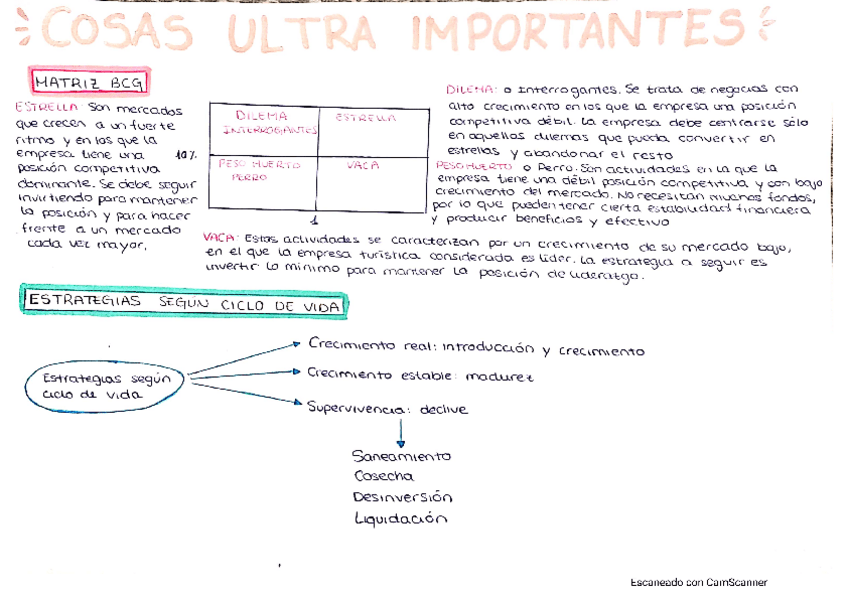 COSAS ULTRA IMPORTANTES
MATRIZ BCG
ESTRELLA: Son mercados
que crecen a un fuerte
ritmo y en los que la
empresa tiene una
posición competitiva
dominante. Se debe seguir
invirtiendo para mantener
la posición y para hacer
frente a un mercado
cada vez mayor.
10%
DILEMA
INTERROGANTES
ESTRELLA
PESO MUERTO
PERRO
VACA
1
DILEMA: o Interrogantes. Se trata de negocios con
alto crecimiento en los que la empresa una posición
competitiva débil. La empresa debe centrarse sólo
en aquellos dilemas que pueda convertir en
estrellas y abandonar el resto
PESO MUERTO o Perro. Son actividades en la que la
empresa tiene una débil posición competitiva y con bajo
crecimiento del mercado. No necesitan muchos fondos,
por lo que pueden tener cierta estabilidad financiera
y producir beneficios y efectivo
VACA: Estas actividades se caracterizan por un crecimiento de su mercado bajo,
en el que la empresa turística considerada es líder. La estrategia a seguir es
invertir lo mínimo para mantener la posición de liderazgo.
ESTRATEGIAS SEGÚN CICLO DE VIDA
Estrategias según
ciclo de vida
Crecimiento real: introducción y crecimiento
Crecimiento estable: madurez
Supervivencia: declive
Saneamiento
Cosecha
Desinversión
Liquidación
Escaneado con CamScanner